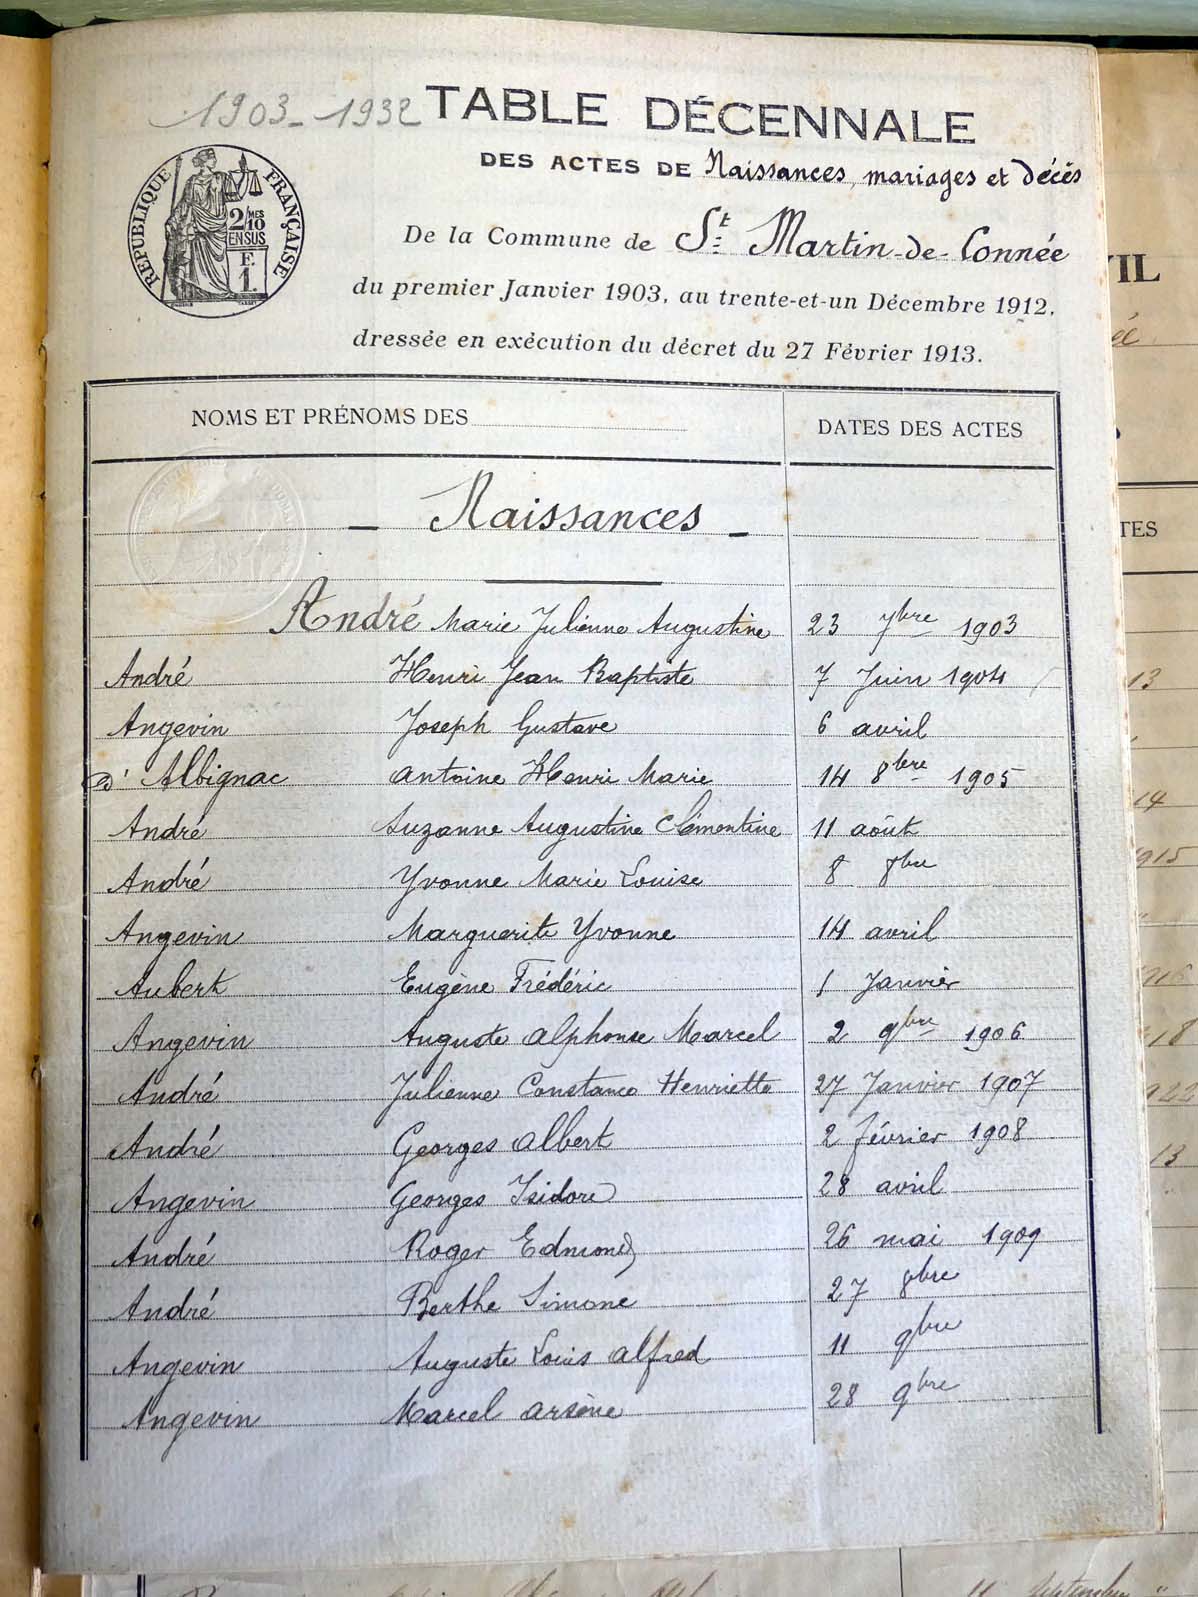 1903-1932 TABLE DÉCENNALE
DES ACTES DE Naissances, mariages et décès
RÉPUBLIQUE FRANÇAISE
2/10 MES
EN SUS
F.
1.
De la Commune de St Martin-de-Connée
du premier Janvier 1903, au trente-et-un Décembre 1912,
dressée en exécution du décret du 27 Février 1913.
NOMS ET PRÉNOMS DES DATES DES ACTES
- Naissances -
André Marie Julienne Augustine 23 7bre 1903
André Henri Jean Baptiste 7 Juin 1904
Angevin Joseph Gustave 6 avril
D'Albignac Antoine Henri Marie 14 8bre 1905
André Suzanne Augustine Clémentine 11 août
André Yvonne Marie Louise 8 8bre
Angevin Marguerite Yvonne 14 avril
Aubert Eugène Frédéric 1 Janvier
Angevin Auguste Alphonse Marcel 2 9bre 1906
André Julienne Constance Henriette 27 Janvier 1907
André Georges Albert 2 février 1908
Angevin Georges Isidore 28 avril
André Roger Edmond 26 mai 1909
André Berthe Simone 27 8bre
Angevin Auguste Louis Alfred 11 9bre
Angevin Marcel Arsène 28 9bre
VIL
TES
13
14
1915
1916
18
1922
13